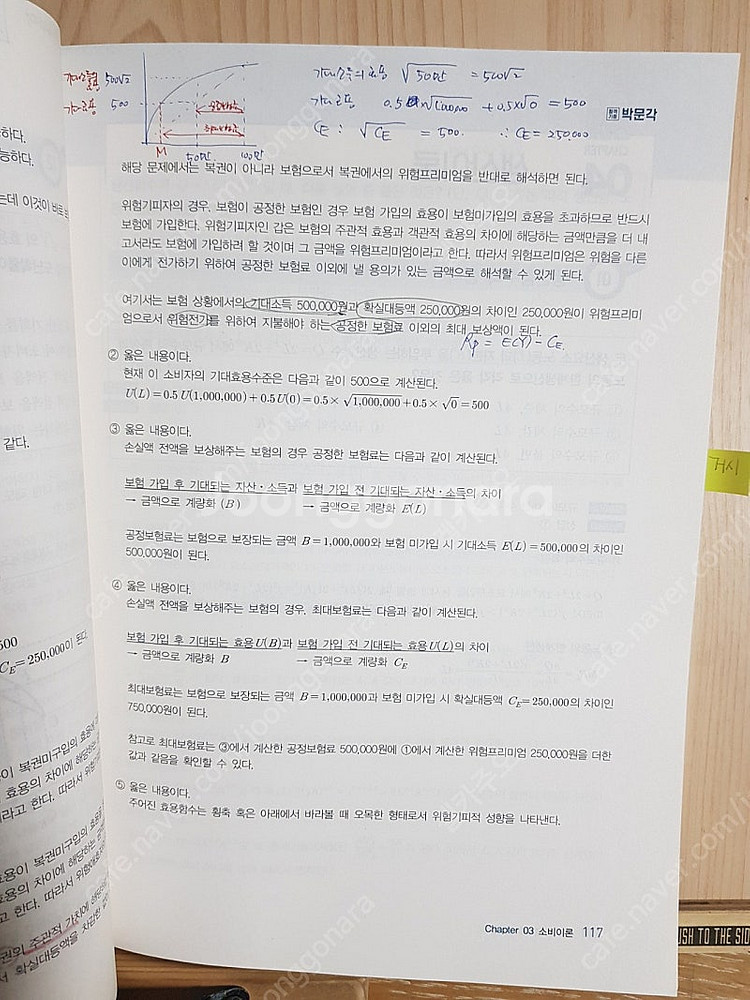 기대소득의 효용 √50만 = 500√2
기대효용 0.5 × √1,000,000 + 0.5×√0 = 500
CE : √CE = 500. ∴ CE = 250,000
기대효용 500
500√2
M 50만 100만
박문각
하다.
능하다.
해당 문제에서는 복권이 아니라 보험으로서 복권에서의 위험프리미엄을 반대로 해석하면 된다.
는데 이것이 바로
위험기피자의 경우, 보험이 공정한 보험인 경우 보험 가입의 효용이 보험미가입의 효용을 초과하므로 반드시
보험에 가입한다. 위험기피자인 갑은 보험의 주관적 효용과 객관적 효용의 차이에 해당하는 금액만큼을 더 내
고서라도 보험에 가입하려 할 것이며 그 금액을 위험프리미엄이라고 한다. 따라서 위험프리미엄은 위험을 다른
이에게 전가하기 위하여 공정한 보험료 이외에 낼 용의가 있는 금액으로 해석할 수 있게 된다.
여기서는 보험 상황에서의 기대소득 500,000원과 확실대등액 250,000원의 차이인 250,000원이 위험프리미
엄으로서 위험전가를 위하여 지불해야 하는 공정한 보험료 이외의 최대 보상액이 된다.
Rp = E(Y) - CE.
② 옳은 내용이다.
현재 이 소비자의 기대효용수준은 다음과 같이 500으로 계산된다.
U(L)=0.5 U(1,000,000)+0.5 U(0)=0.5× √1,000,000+0.5× √0=500
③ 옳은 내용이다.
손실액 전액을 보상해주는 보험의 경우 공정한 보험료는 다음과 같이 계산된다.
같다.
보험 가입 후 기대되는 자산·소득과 보험 가입 전 기대되는 자산·소득의 차이
→ 금액으로 계량화 (B) → 금액으로 계량화 E(L)
공정보험료는 보험으로 보장되는 금액 B=1,000,000와 보험 미가입 시 기대소득 E(L)=500,000의 차이인
500,000원이 된다.
거시
④ 옳은 내용이다.
손실액 전액을 보상해주는 보험의 경우, 최대보험료는 다음과 같이 계산된다.
500
C_E=250,000이 된다.
보험 가입 후 기대되는 효용 U(B)과 보험 가입 전 기대되는 효용 U(L)의 차이
→ 금액으로 계량화 B → 금액으로 계량화 C_E
최대보험료는 보험으로 보장되는 금액 B=1,000,000과 보험 미가입 시 확실대등액 C_E=250,000의 차이인
750,000원이 된다.
참고로 최대보험료는 ③에서 계산한 공정보험료 500,000원에 ①에서 계산한 위험프리미엄 250,000원을 더한
값과 같음을 확인할 수 있다.
⑤ 옳은 내용이다.
주어진 효용함수는 횡축 혹은 아래에서 바라볼 때 오목한 형태로서 위험기피적 성향을 나타낸다.
Chapter 03 소비이론 117
USH TO THE SID
joonggonara
cafe.naver.com/joonggonara